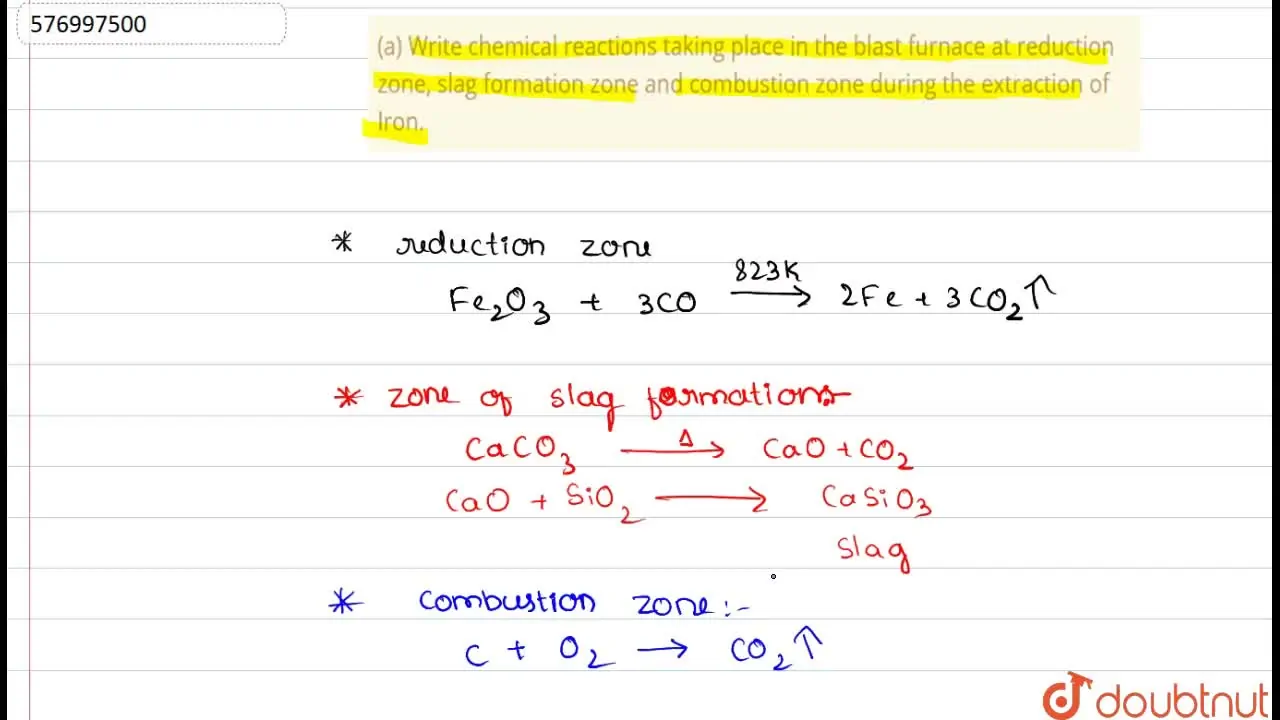 576997500
(a) Write chemical reactions taking place in the blast furnace at reduction
zone, slag formation zone and combustion zone during the extraction of
Iron.
* reduction zone
Fe₂O₃ + 3CO —823K→ 2Fe + 3CO₂↑
* zone of slag formations:-
CaCO₃ —Δ→ CaO + CO₂
CaO + SiO₂ → CaSiO₃
Slag
* Combustion zone:-
C + O₂ → CO₂↑
doubtnut